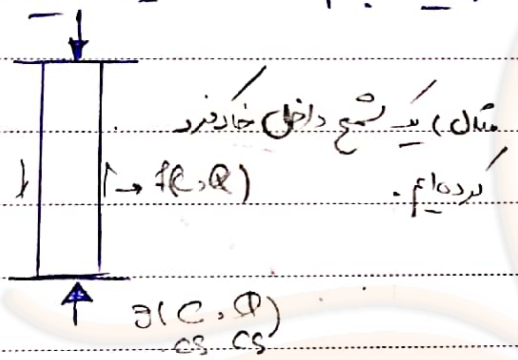 مثال) یک شمع داخل خاک فرو
کرده‌ایم.
→ f(C, Φ)
g(C, Φ)
CS CS